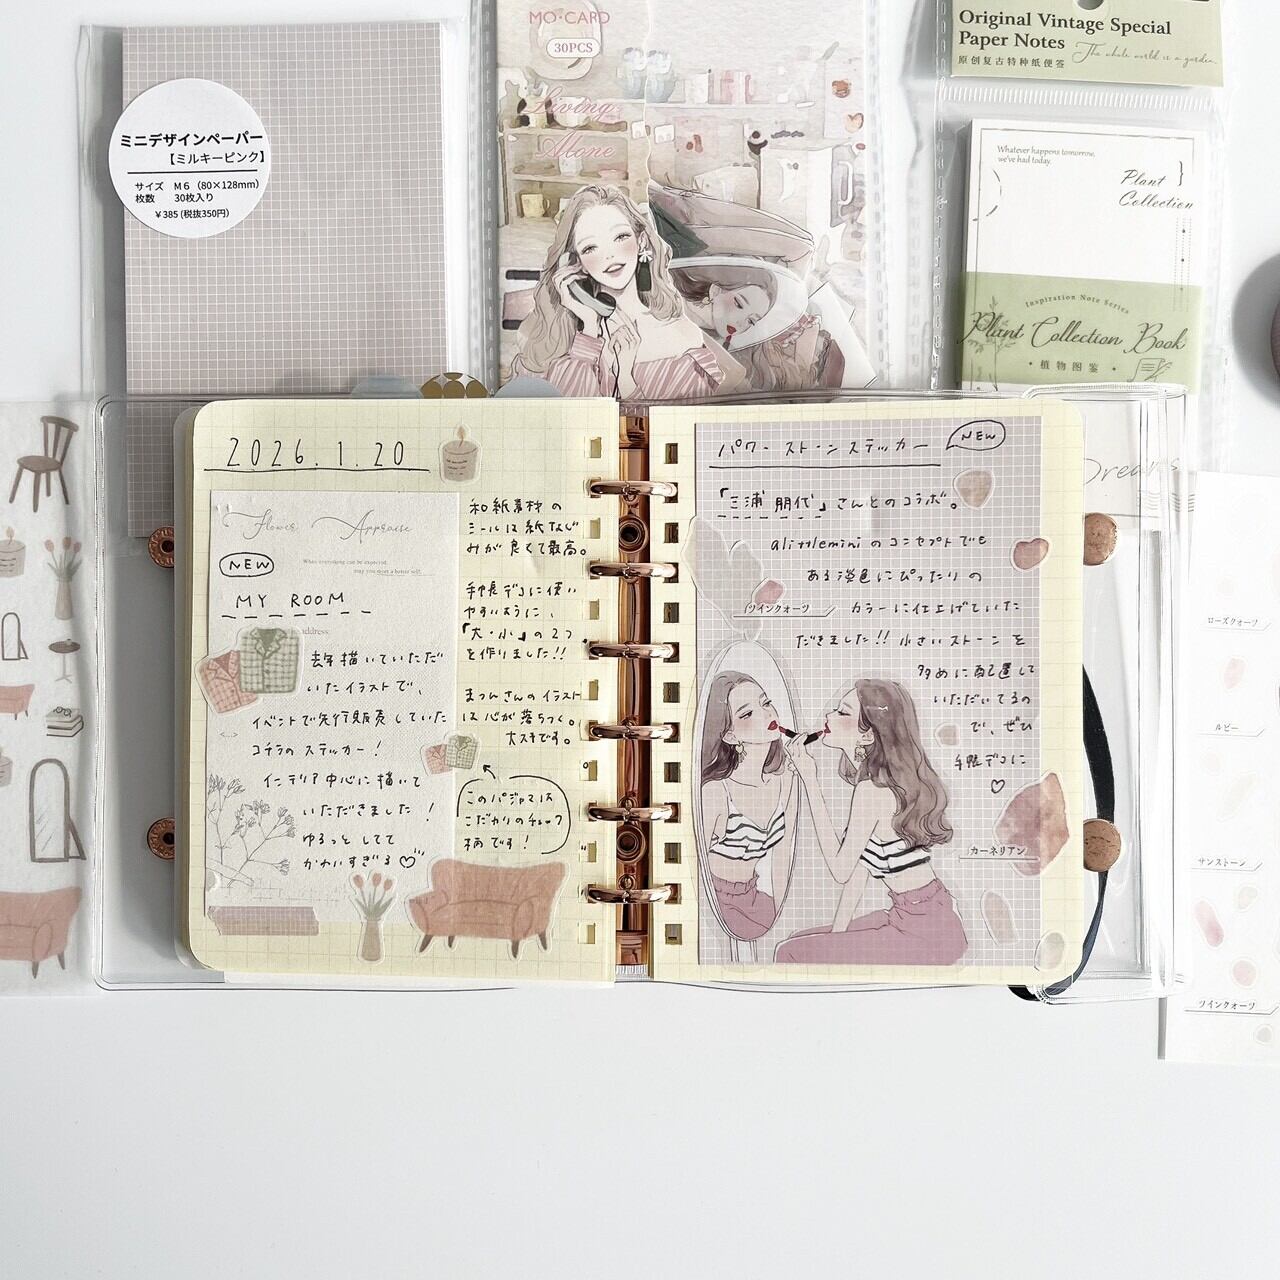 ミニデザインペーパー
【ミルキーピンク】
サイズ M6（80×128mm）
枚数 30枚入り
¥385（税抜350円）
MO·CARD
30PCS
Living
Alone
Original Vintage Special
Paper Notes
The whole world is a garden.
原创复古特种纸便签
Whatever happens tomorrow,
we've had today.
Plant
Collection
Inspiration Note Series
Plant Collection Book
· 植物图鉴 ·
Dreams
2026.1.20
Flower Appraise
NEW
When everything can be expected,
may you meet a better self.
MY ROOM
address:
去年描いていただ
いたイラストで、
イベントで先行販売していた
コチラのステッカー！
インテリア中心に描いて
いただきました！
ゆるっとしてて
かわいすぎる♡
和紙素材の
シールは紙なじ
みが良くて最高。
手帳デコに使い
やすいように、
「大・小」の2つ
を作りました!!
まつんさんのイラスト
は心が落ちつく。
大スキです。
このパジャマは
こだわりのチェック
柄です！
パワーストーンステッカー
NEW
「三浦 朋代」さんとのコラボ。
alittleminiのコンセプトでも
ある淡色にぴったりの
ツインクォーツ
カラーに仕上げていた
だきました!! 小さいストーンを
多めに配置して
いただいてるの
で、ぜひ
手帳デコに
♡
カーネリアン
ローズクォーツ
ルビー
サンストーン
ツインクォーツ